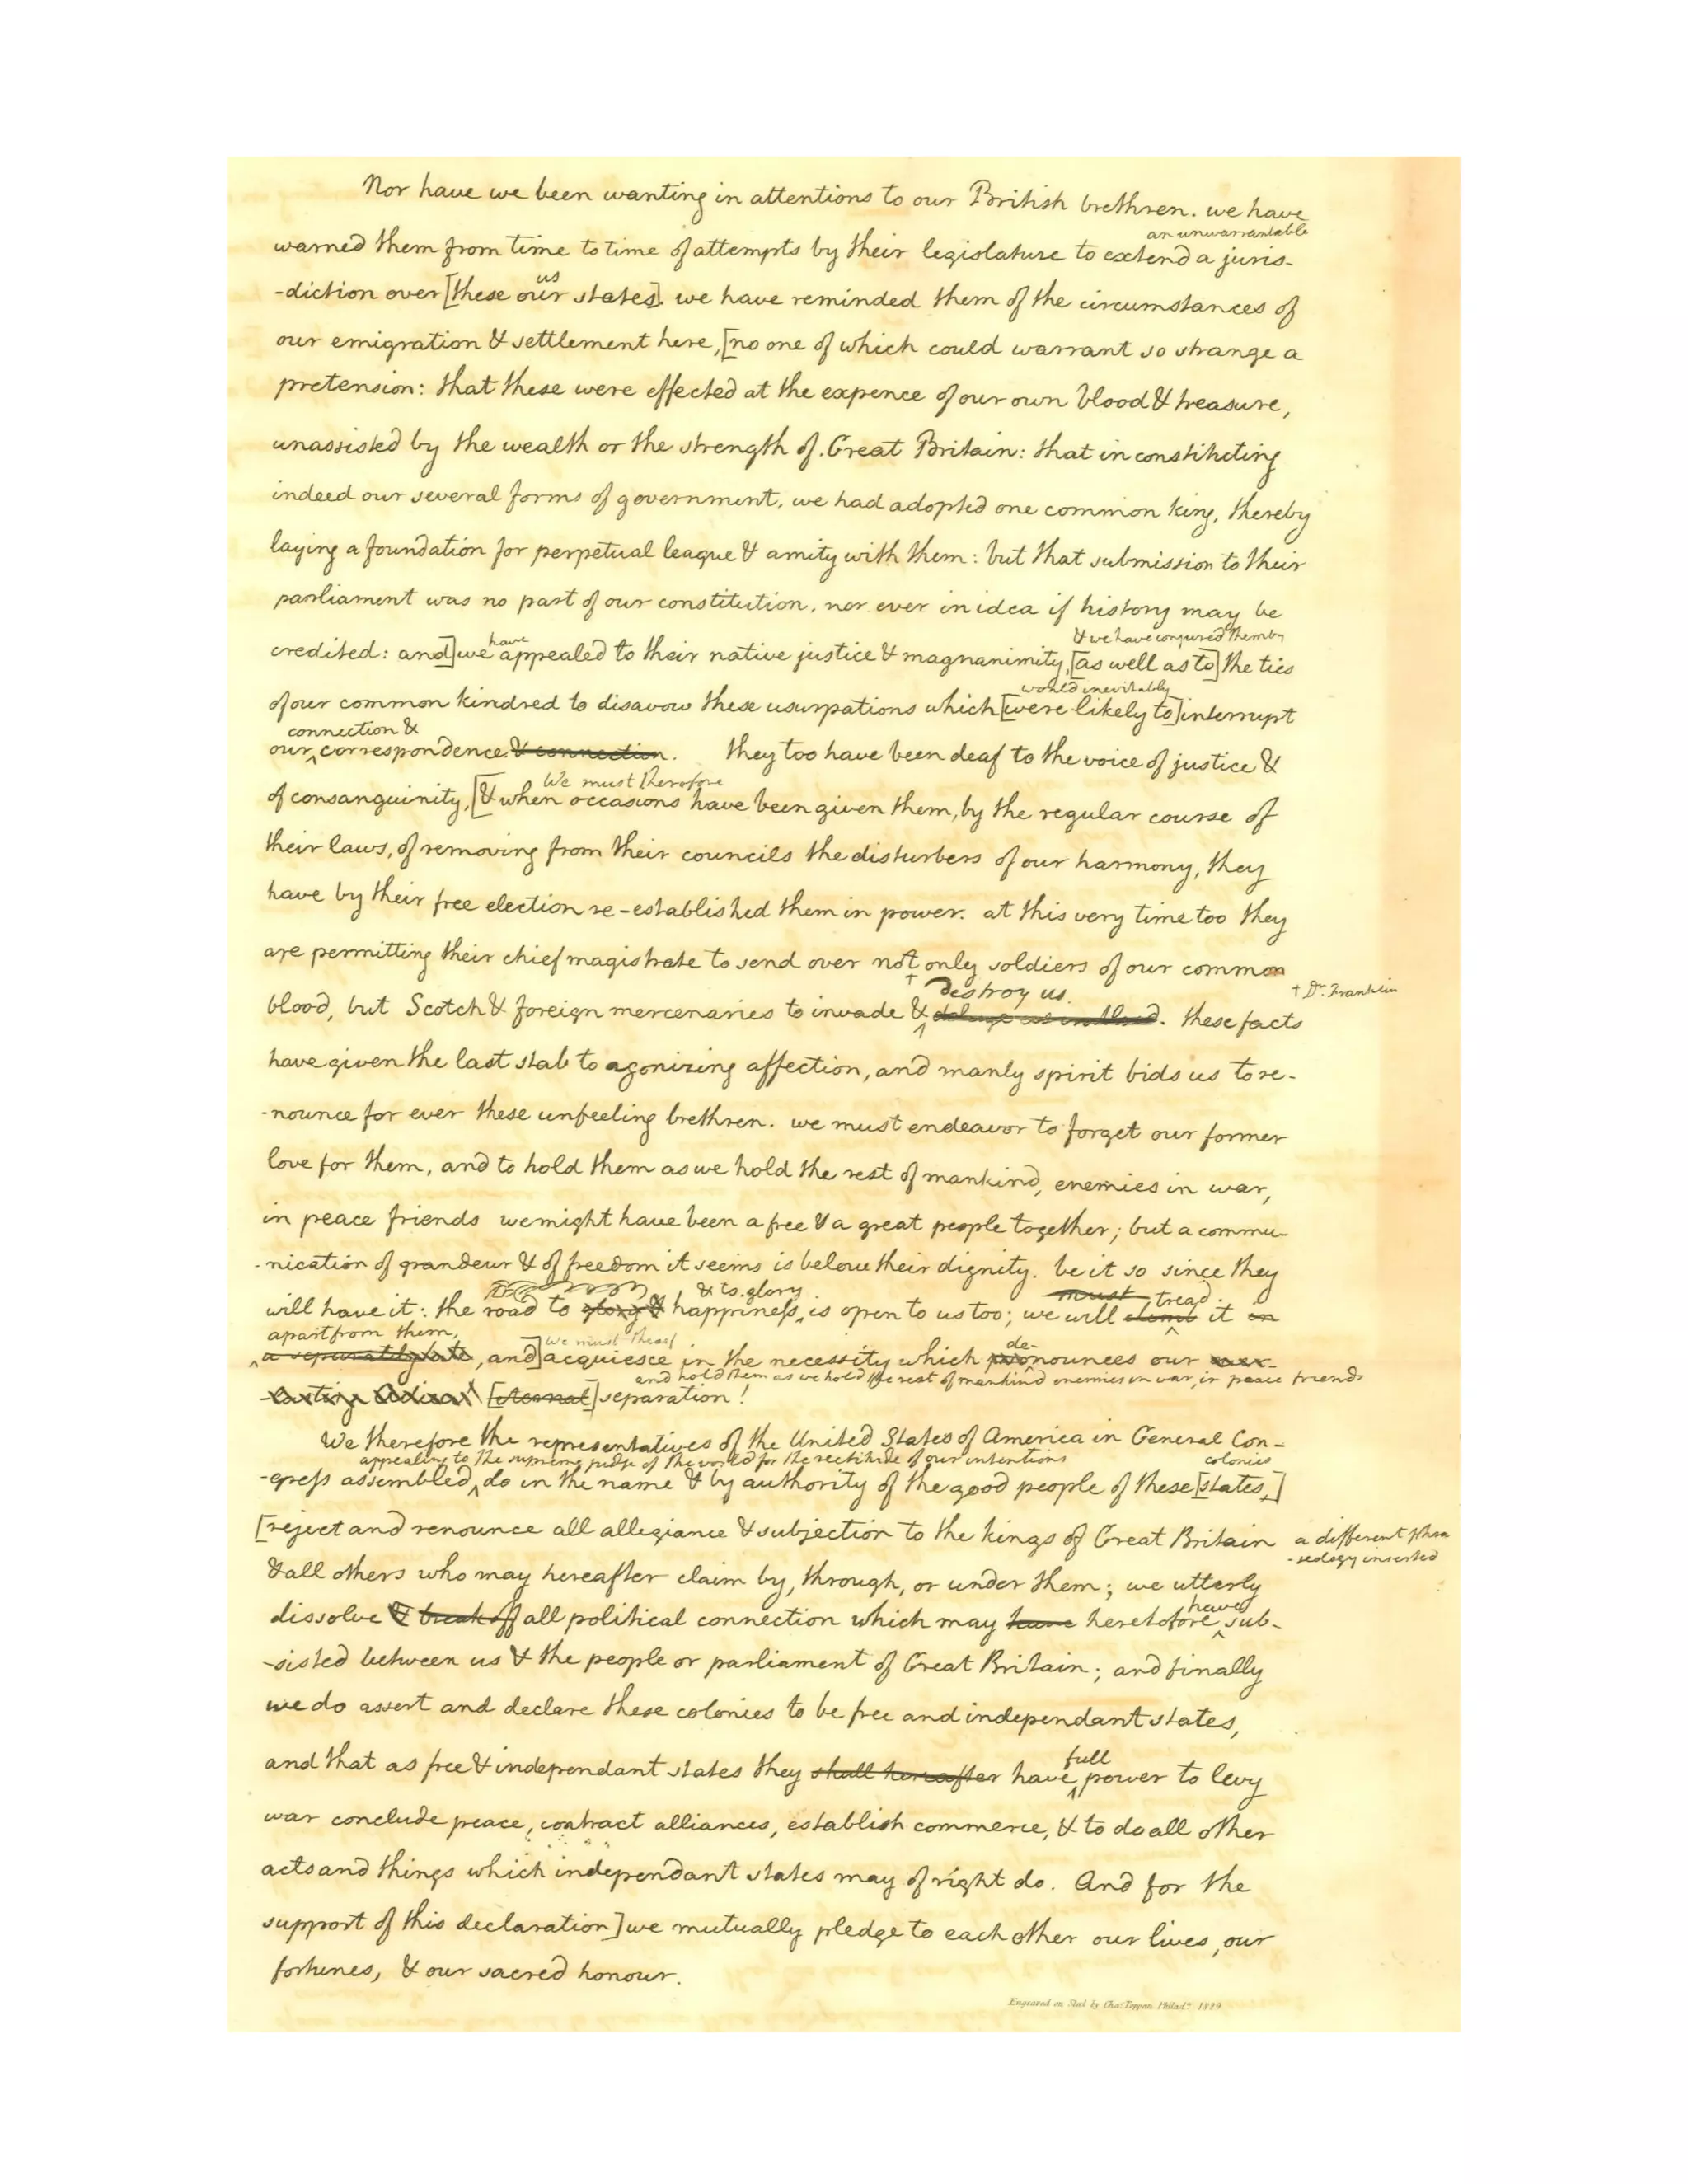 Nor have we been wanting in attentions to our British brethren. we have
an unwarrantable
warned them from time to time of attempts by their legislature to extend a juris-
us
-diction over [these our states]. we have reminded them of the circumstances of
our emigration & settlement here, [no one of which could warrant so strange a
pretension: that these were effected at the expence of our own blood & treasure,
unassisted by the wealth or the strength of Great Britain: that in constituting
indeed our several forms of government, we had adopted one common king, thereby
laying a foundation for perpetual league & amity with them: but that submission to their
parliament was no part of our constitution, nor ever in idea if history may be
have & we have conjured them by
credited: and] we appealed to their native justice & magnanimity, [as well as to] the ties
would inevitably
of our common kindred to disavow these usurpations which [were likely to] interrupt
connection &
our ^ correspondence & connection. they too have been deaf to the voice of justice &
We must therefore
of consanguinity, [& when occasions have been given them, by the regular course of
their laws, of removing from their councils the disturbers of our harmony, they
have by their free election re-established them in power. at this very time too they
are permitting their chief magistrate to send over not only soldiers of our common
† destroy us. † Dr. Franklin
blood, but Scotch & foreign mercenaries to invade & ^ deluge us in blood. these facts
have given the last stab to agonizing affection, and manly spirit bids us to re-
-nounce for ever these unfeeling brethren. we must endeavor to forget our former
love for them, and to hold them as we hold the rest of mankind, enemies in war,
in peace friends we might have been a free & a great people together; but a commu-
-nication of grandeur & of freedom it seems is below their dignity. be it so since they
& to glory must tread
will have it: the road to glory & happiness ^ is open to us too; we will climb ^ it in
apart from them,
^ a separately state, and] acquiesce in the necessity which pronounces our ever-
We must theref de-
and hold them as we hold the rest of mankind enemies in war, in peace friends
-lasting Adieu! [eternal] separation!
We therefore the representatives of the United States of America in General Con-
appealing to the supreme judge of the world for the rectitude of our intentions colonies
-gress assembled, ^ do in the name & by authority of the good people of these [states,]
[reject and renounce all allegiance & subjection to the kings of Great Britain a different phra
-seology inserted
& all others who may hereafter claim by, through, or under them; we utterly
have
dissolve & break off all political connection which may have heretofore ^ sub-
-sisted between us & the people or parliament of Great Britain; and finally
we do assert and declare these colonies to be free and independant states,
full
and that as free & independant states they shall hereafter have ^ power to levy
war conclude peace, contract alliances, establish commerce, & to do all other
acts and things which independant states may of right do. And for the
support of this declaration] we mutually pledge to each other our lives, our
fortunes, & our sacred honour.
Engraved on Steel by Chas. Toppan Philada. 1829